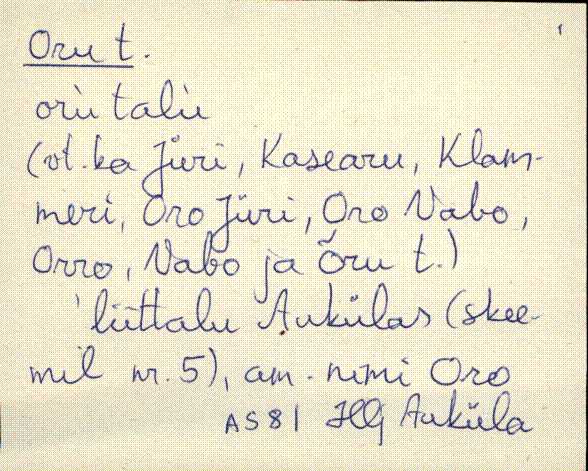 1
Oru t.
orù talù
(vt. ka Jüri, Kasearu, Klam-
meri, Oro Jüri, Oro Vabo,
Orro, Vabo ja Õru t.)
'liittalu Aukülas (skee-
mil nr. 5), am. nimi Oro
AS81 Auküla